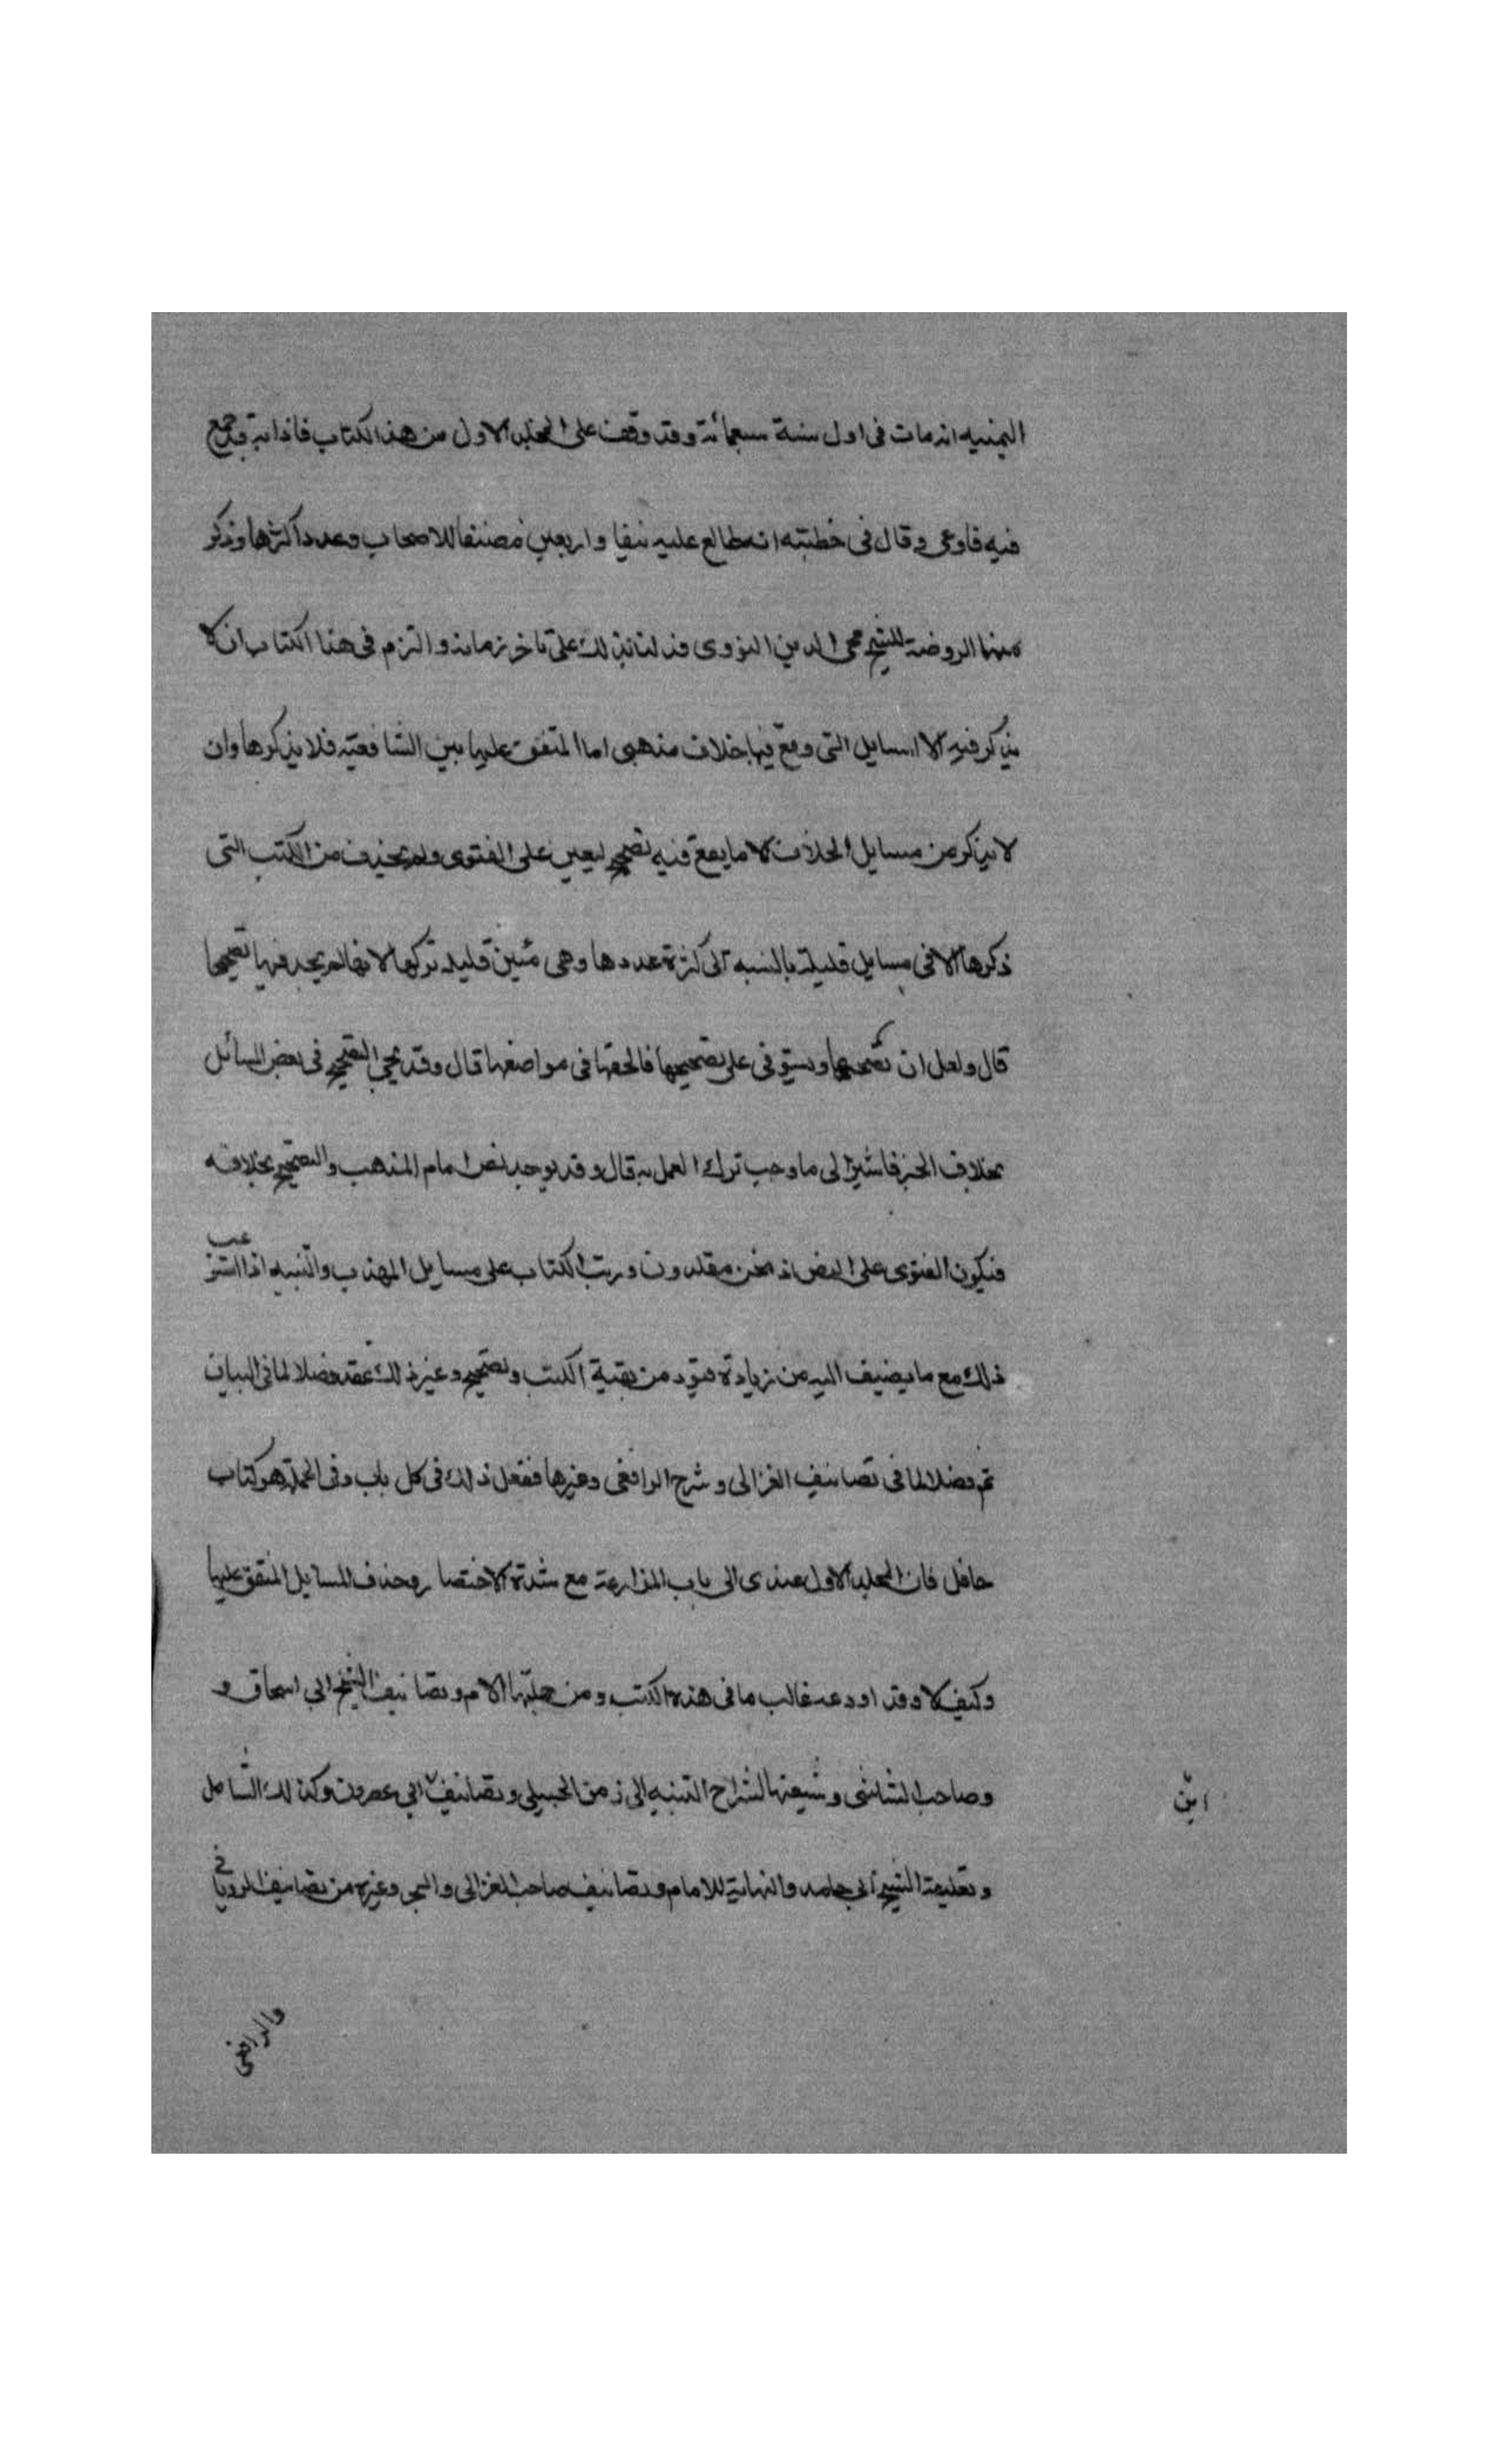 اليمنيه انه مات فى اول سنة سبعمائة وقد وقفت على المجلد الاول من هذا الكتاب فاذا به قد جمع
فيه فاوعى وقال فى خطبته انه طالع عليه نيفا واربعين مصنفا للاصحاب وعدد اكثرها وذكر
منها الروضة للشيخ محى الدين النووى فدلنا ذلك على تاخر زمانه والتزم فى هذا الكتاب ان لا
يذكر فيه الا المسايل التى وقع فيها خلاف مذهبى اما المتفق عليها بين الشافعية فلا يذكرها وان
لا يذكر من مسايل الخلاف الا ما يقع فيه تصحيح ليعين على الفتوى ولم يحذف من الكتب التى
ذكرها الا فى مسايل قليلة بالنسبه الى كثرة عددها وهى مئين قليلة تركها لانها لم يجد فيها تصحيحا
قال ولعل ان تصحيحها وستوفى على تصحيحها فالحقها فى مواضعها قال وقد يجى التصحيح فى بعض المسائل
بخلاف الخبر فاشير الى ما وجب ترك العمل به قال وقد يوجد نص امام المذهب والتصحيح بخلافه
فيكون الفتوى على النص اذ نحن مقلدون ورتب الكتاب على مسايل المهذب والتنبيه اذا استو
عب
ذلك مع ما يضيف اليه من زيادة قيود من بقية الكتب وتصحيح وغير ذلك عقد فصلا لما فى البيان
ثم فصلا لما فى تصانيف الغزالى وشرح الرافعى وغيرها ففعل ذلك فى كل باب وفى الجملة هو كتاب
حافل فان المجلد الاول عندى الى باب المزارعة مع شدة الاختصار وحذف المسايل المتفق عليها
وكيف لا وقد اودعه غالب ما فى هذه الكتب ومن جملتها الام وتصانيف الشيخ ابى اسحاق و
وصاحب الشاشى وشيعتها لشراح التنبيه الى زمن الجبيلى وتصانيف ابى عصرون وكذلك الشامل
ابن
وتعليقة الشيخ ابى حامد والنهاية للامام وتصانيف صاحب الغزالى والبحر وغيره من تصانيف الرويانى
والرافعى